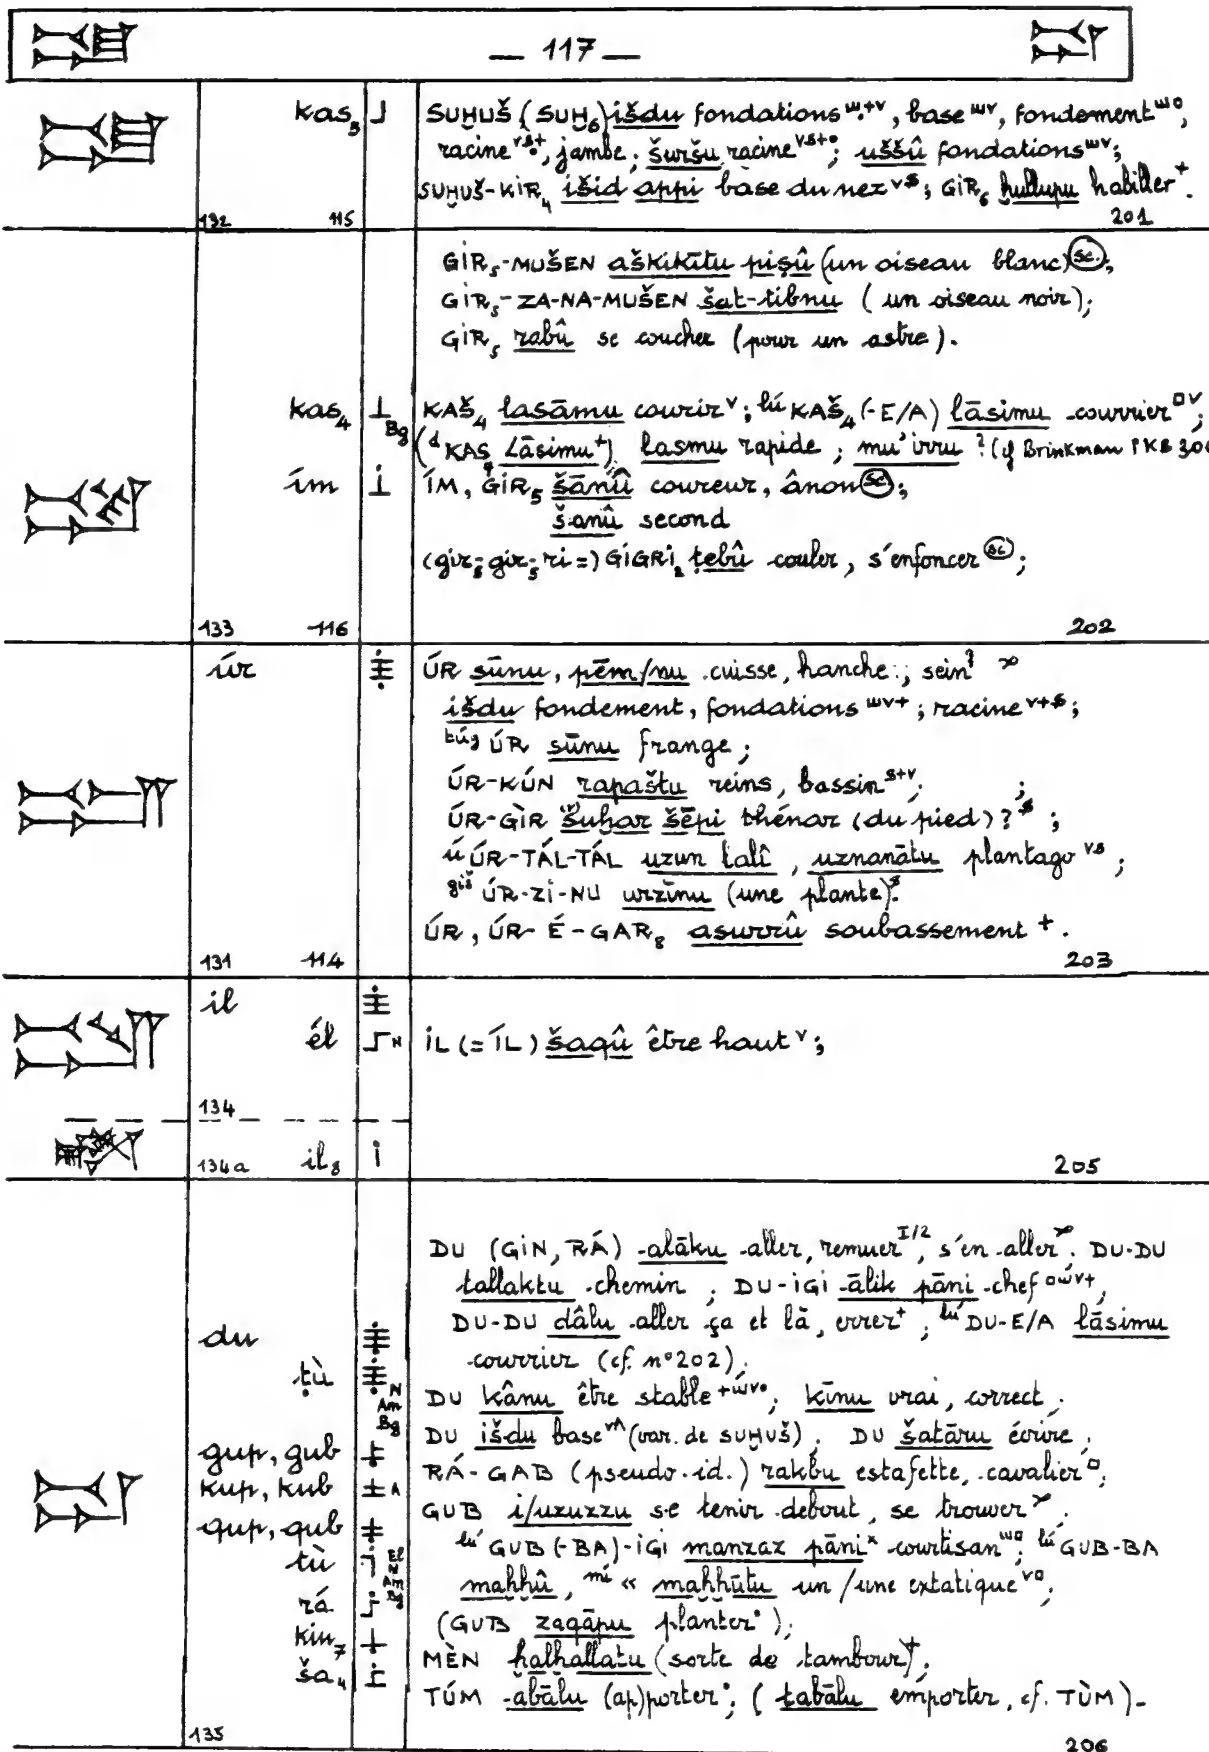 — 117 —
kas₅ SUḪUŠ (SUḪ₆) išdu fondations, base, fondement,
racine, jambe; šuršu racine; uššû fondations;
SUḪUŠ-KIR₄ išid appi base du nez; GIR₆ ḫullupu habiller.
132 115 201
GIR₅-MUŠEN aškikītu piṣû (un oiseau blanc) sc.;
GIR₅-ZA-NA-MUŠEN šat-tibnu (un oiseau noir);
GIR₅ rabû se coucher (pour un astre).
kas₄ Bg KAŠ₄ lasāmu courir; lú KAŠ₄ (-E/A) lāsimu courrier;
(ᵈKAS₄ Lāsimu) lasmu rapide; mu'irru? (cf Brinkman PKB 30
ím ÍM, GIR₅ šānû coureur, ânon sc.;
šanû second
(gir₅-gir₅-ri =) GÍGRI₂ ṭebû couler, s'enfoncer sc;
133 116 202
úr ÚR sūnu, pēm/nu cuisse, hanche; sein?
išdu fondement, fondations; racine;
túg ÚR sūnu frange;
ÚR-KÚN rapaštu reins, bassin;
ÚR-GÌR šuḫar šēpi thénar (du pied)?;
ú ÚR-TÁL-TÁL uzun lalî, uznanātu plantago;
giš ÚR-ZI-NU urzīnu (une plante).
ÚR, ÚR-É-GAR₈ asurrû soubassement.
131 114 203
il
él N IL (= ÍL) šaqû être haut;
134
134a il₈ 205
DU (GIN, RÁ) alāku aller, remuer I/2, s'en aller. DU-DU
tallaktu chemin; DU-IGI ālik pāni chef,
DU-DU dâlu aller ça et là, errer; lú DU-E/A lāsimu
du
courrier (cf. n°202);
ṭù N Am Bg
DU kânu être stable; kīnu vrai, correct;
DU išdu base (var. de SUḪUŠ). DU šaṭāru écrire;
gup, gub
RÁ-GAB (pseudo-id.) rakbu estafette, cavalier;
kup, kub A
GUB i/uzuzzu se tenir debout, se trouver.
qup, qub
lú GUB (-BA)-IGI manzaz pāni courtisan; lú GUB-BA
tù
maḫḫû, mí « maḫḫūtu un/une extatique;
rá
(GUB zaqāpu planter);
kin₇
MÈN ḫalḫallatu (sorte de tambour).
ša₄
TÚM abālu (ap)porter; (tabālu emporter, cf. TÙM).
135 206